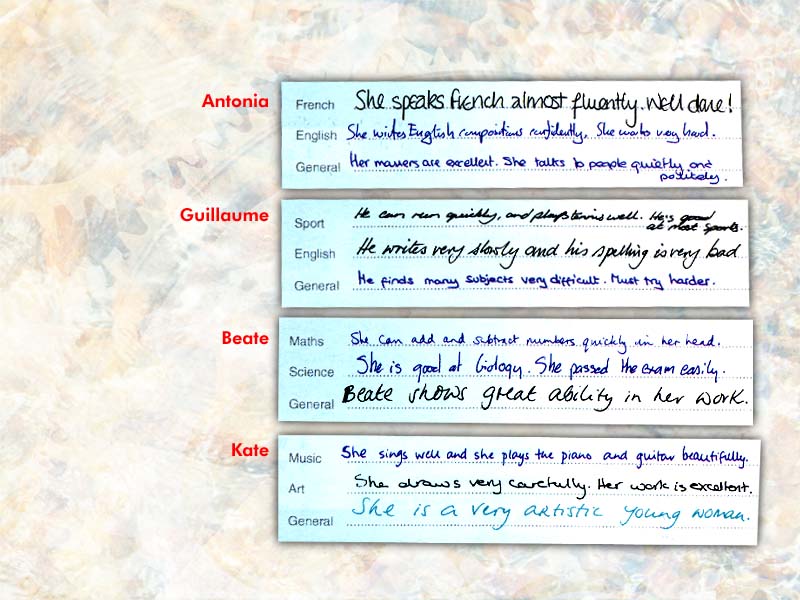 Antonia
French She speaks French almost fluently. Well done!
English She writes English compositions confidently. She works very hard.
General Her manners are excellent. She talks to people quietly and
politely.
Guillaume
Sport He can run quickly, and plays tennis well. He's good
at most sports.
English He writes very slowly and his spelling is very bad
General He finds many subjects very difficult. Must try harder.
Beate
Maths She can add and subtract numbers quickly in her head.
Science She is good at biology. She passed the exam easily.
General Beate shows great ability in her work.
Kate
Music She sings well and she plays the piano and guitar beautifully.
Art She draws very carefully. Her work is excellent.
General She is a very artistic young woman.